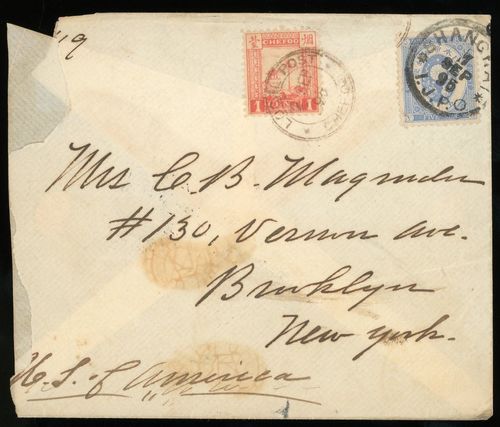 119
CHEFOO
LOCAL POST
CHEFOO
SHANGHAI
7
SEP
95
I.J.P.O
FIVE
Mrs C. B. Magruder
#130, Vernon Ave.
Brooklyn
New York.
U.S. of America